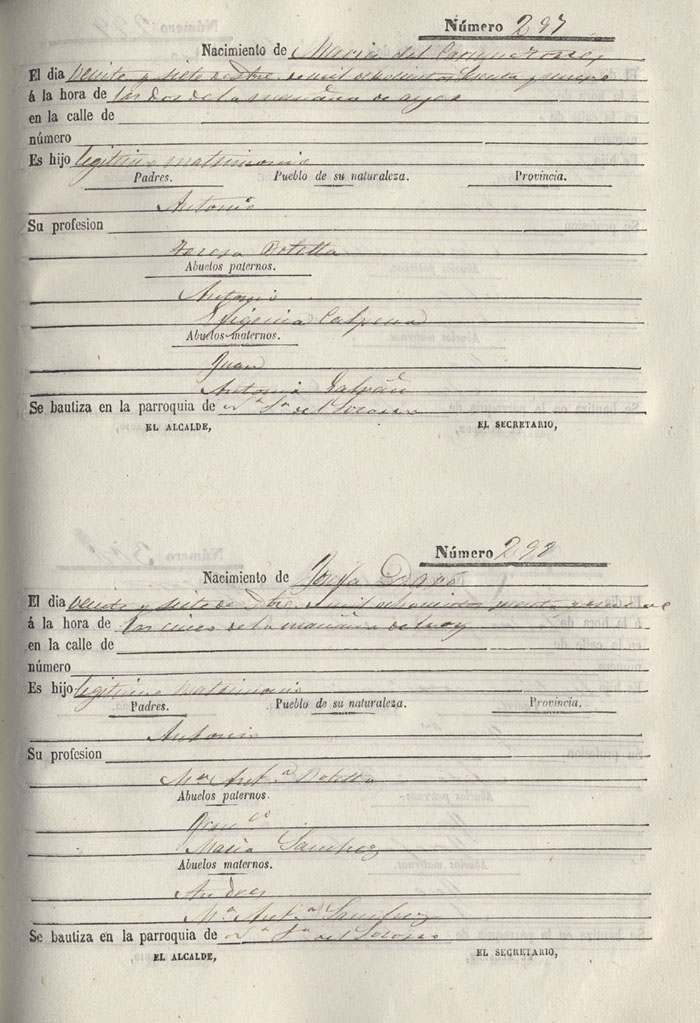 Número 297
Nacimiento de Maria del Carmen
El dia veinte y siete de mil ochocientos y
á la hora de las dos de la mañana de ayer
en la calle de
número
Es hijo legitimo matrimonio
Padres. Pueblo de su naturaleza. Provincia.
Antonio
Su profesion
Teresa Botella
Abuelos paternos.
Antonio
Efigenia Calpena
Abuelos maternos.
Juan
Antonia Galvañ
Se bautiza en la parroquia de N.ª S.ª del Socorro
EL ALCALDE, EL SECRETARIO,
Número 298
Nacimiento de Josefa
El dia veinte y siete de mil ochocientos y
á la hora de las cinco de la mañana de hoy
en la calle de
número
Es hijo legitimo matrimonio
Padres. Pueblo de su naturaleza. Provincia.
Antonio
Su profesion
M.ª Ant.ª Botella
Abuelos paternos.
Fran.co
Maria Sanchez
Abuelos maternos.
Andres
M.ª Ant.ª Sanchez
Se bautiza en la parroquia de N.ª S.ª del Socorro
EL ALCALDE, EL SECRETARIO,